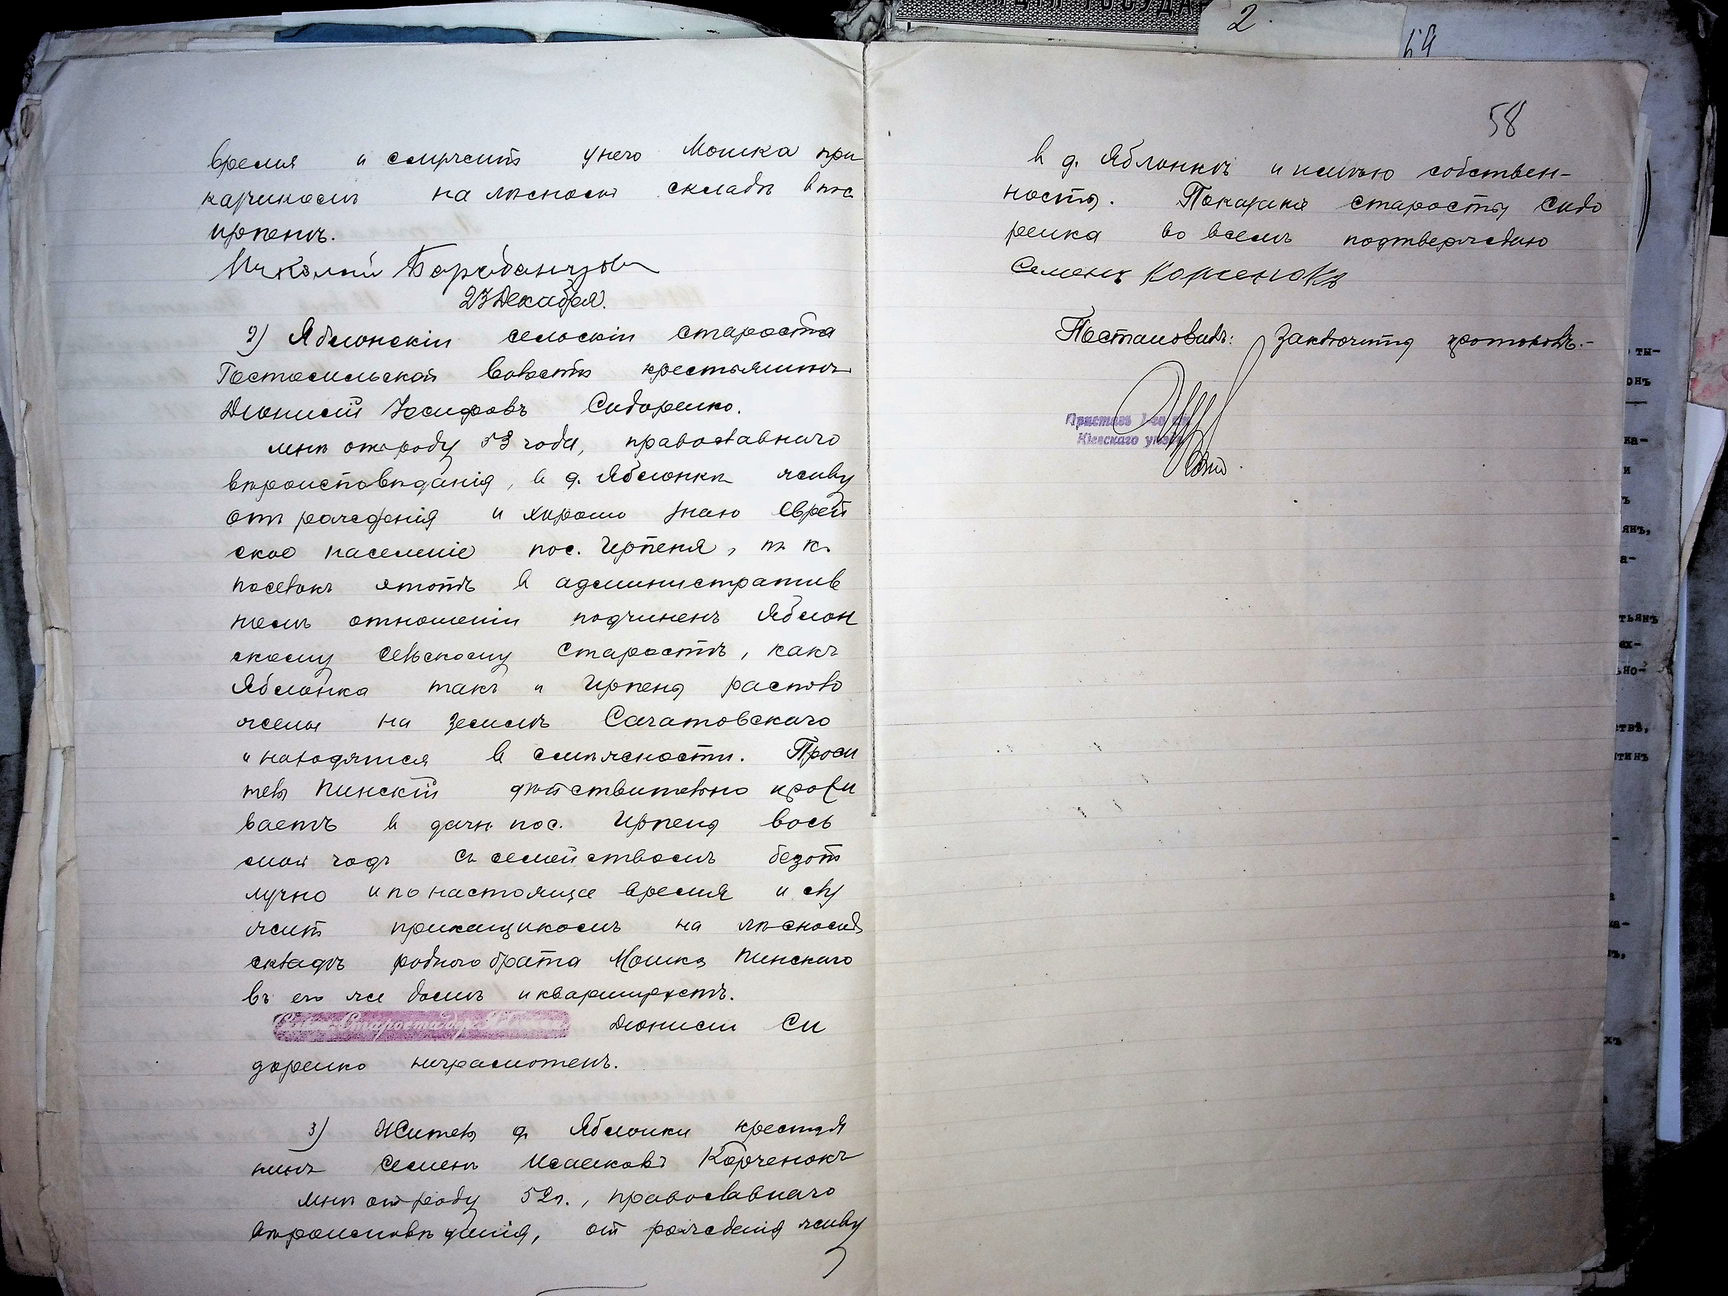 время и служитъ у него Мошка при
кащикомъ на лѣсномъ складѣ въ пос
Ирпенѣ.
Николай Барабанчзов
23 Декабря.
2) Яблонскій сельскій староста
Гостомельской волости крестьянинъ
Діонисій Іосифовъ Сидоренко.
мнѣ отъ роду 53 года, православнаго
вѣроисповѣданія, в д. Яблонкѣ живу
отъ рожденія и хорошо знаю еврей
ское населеніе пос. Ирпеня, т. к.
поселокъ этотъ в административ
номъ отношеніи подчиненъ Яблон
скому сельскому старостѣ, какъ
Яблонка такъ и Ирпень располо
жены на землѣ Сагатовскаго
и находятся в смежности. Проси
тель Пинскій дѣйствительно прожи
ваетъ в дачн. пос. Ирпень вось
мой годъ съ семействомъ безот
лучно и по настоящее время и слу
житъ прикащикомъ на лѣсномъ
складѣ родного брата Мошка Пинскаго
въ его же домѣ и квартируетъ.
Діонисій Си
доренко неграмотенъ.
3) Житель д. Яблонки крестья
нинъ Семенъ Исааковъ Корченокъ
мнѣ отъ роду 52 г., православнаго
вѣроисповѣданія, отъ рожденія живу
58
в д. Яблонкѣ и имѣю собствен-
ность. Показаніе старосты Сидо
ренка во всемъ подтверждаю
Семенъ Корченокъ
Постановилъ: Заключить протоколъ.-
Приставъ 1-го ст.
Кіевскаго уѣзда
2.